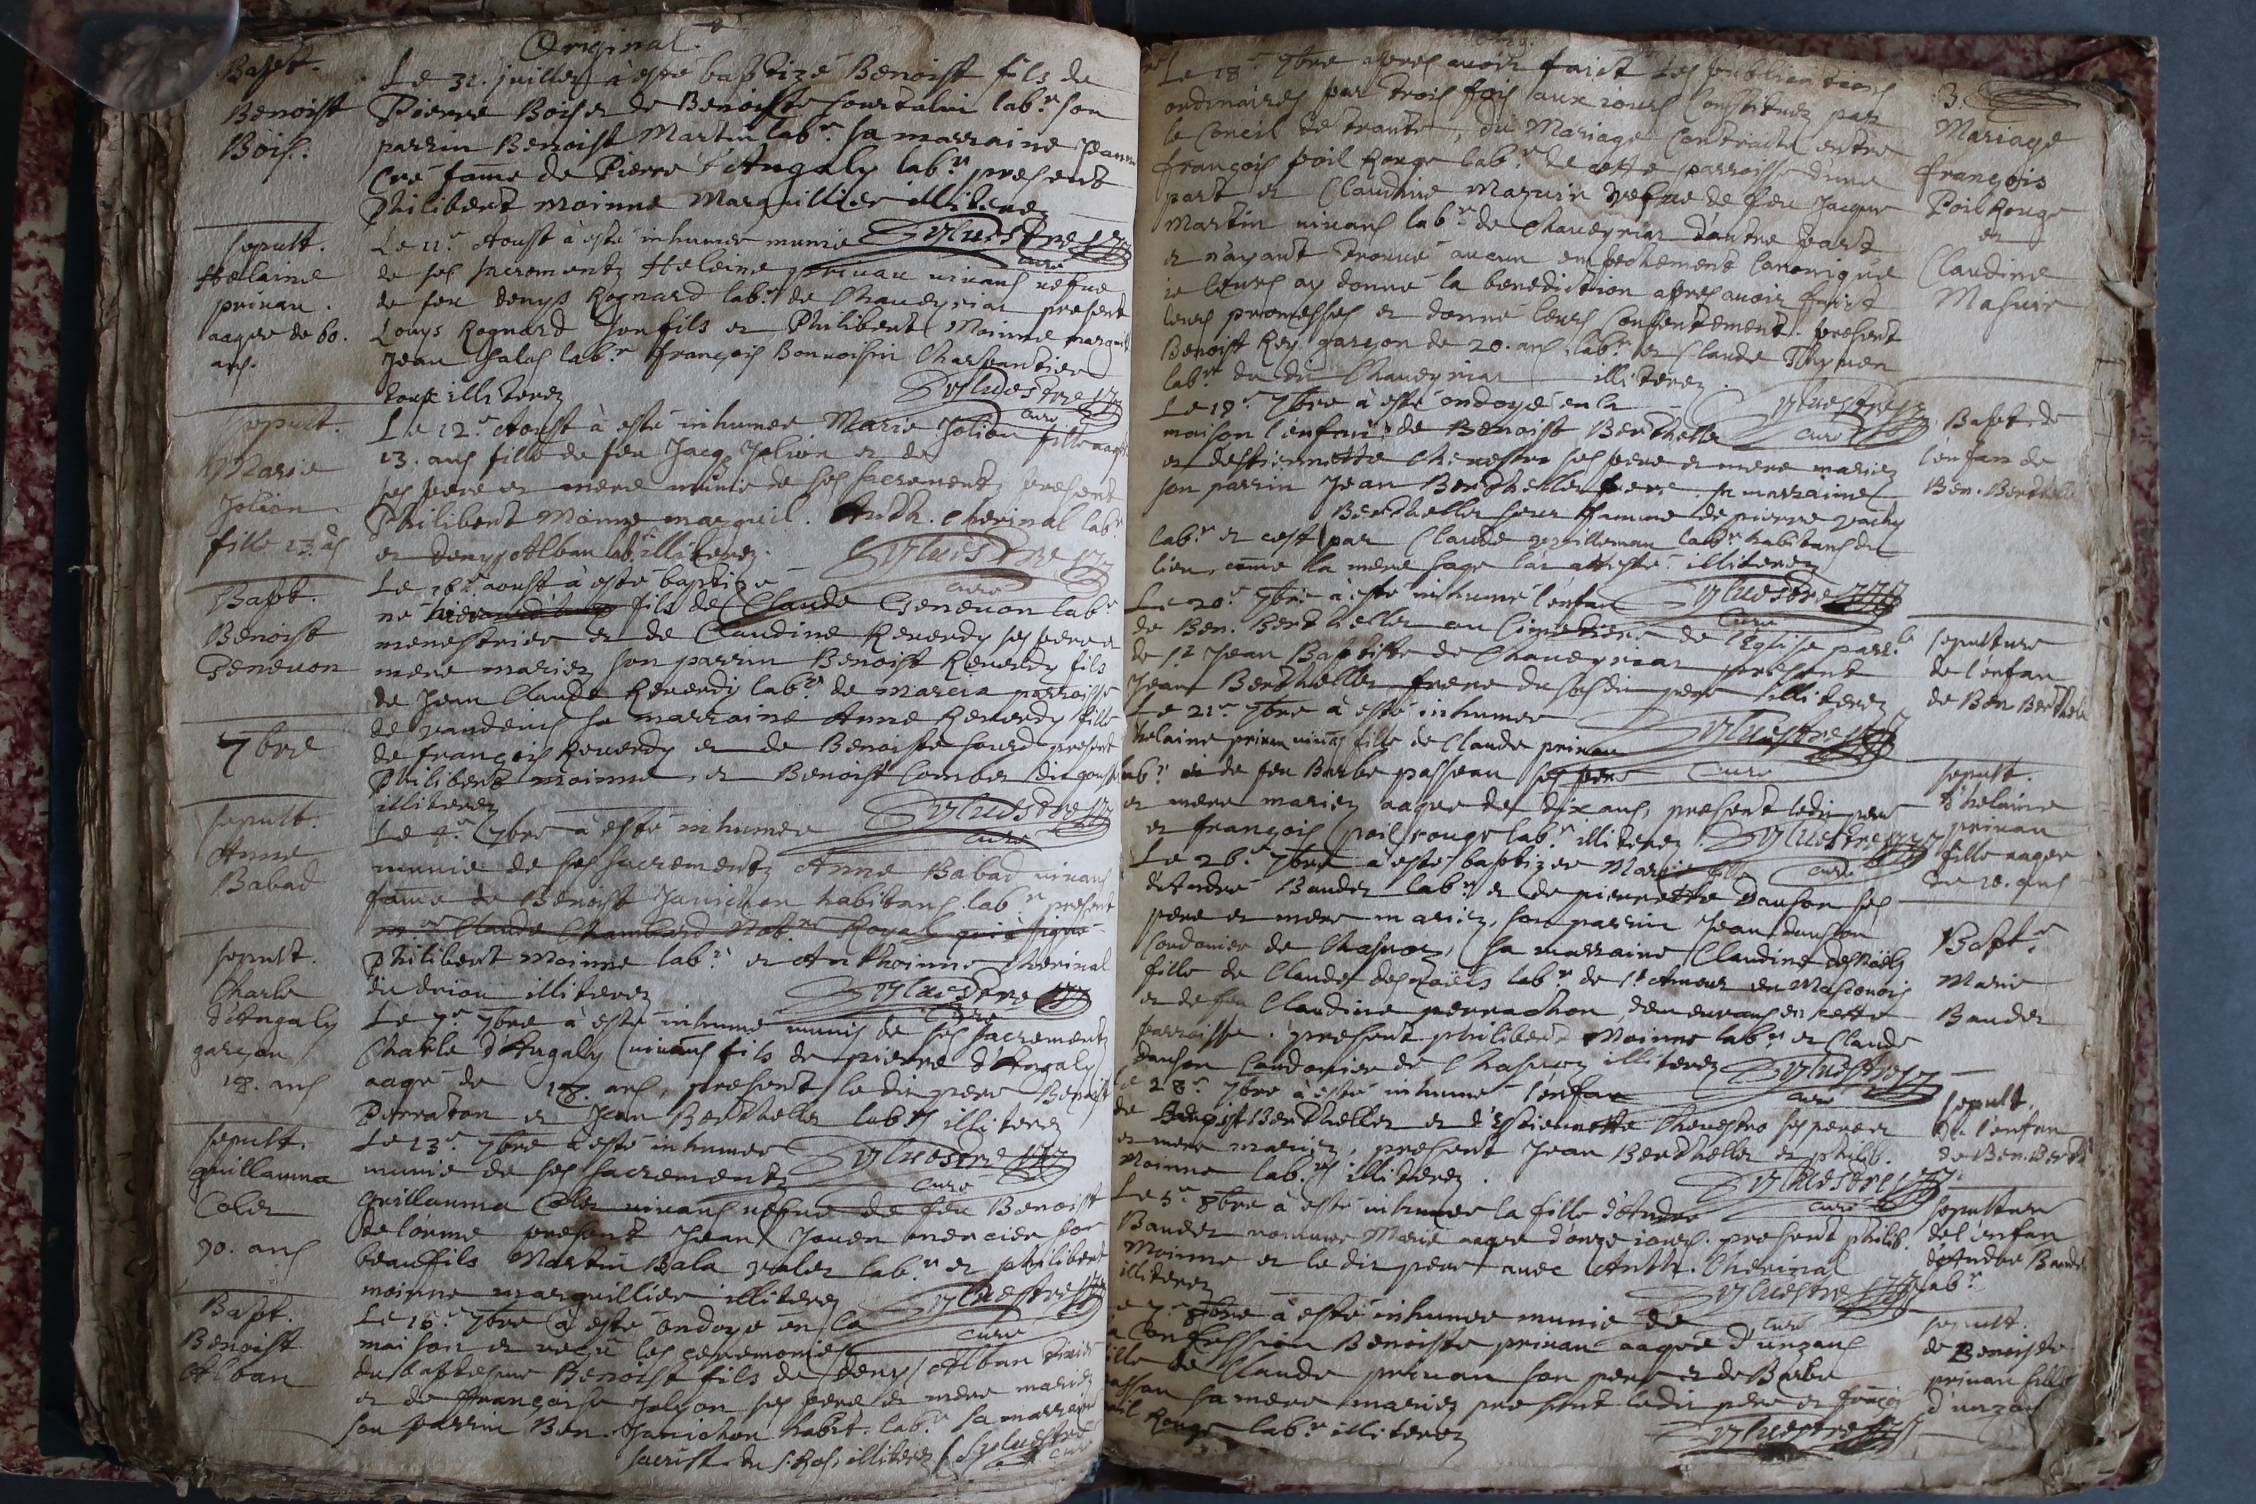 Original.
Bapt.
Benoist
Bois.
Le 31. juillet à esté baptizé Benoist fils de
Pierre Bois et de Benoiste lab.r son
parrin Benoist Martin lab.r sa marraine
fame de Pierre d'Angaly lab.r present
Philibert moinne Marguillier illiterez
Sylvestre
curé
sepult.
Helaine
privan.
aagee de 60.
ans.
Le 11.e Aoust à esté inhumee munie
de ses sacrementz Heleine privan vivans vefve
de feu denys Rognard lab.r de Chaveyriat present
Louys Rognard son fils et Philibert Moinne marguil
Jean lab.r françois Bonvoisin Charpantier
tous illiterez
Sylvestre
curé
sepult.
Marie
Jolion
fille 13. ās
Le 12.e Aoust à esté inhumee Marie Jolion fille aagee
13. ans fille de feu Jacq Jolion et de
ses pere et mere munie de ses sacrementz present
Philibert Moinne marguil. Anth. Cherinal lab.r
et denys Alban lab.r illiterez.
Sylvestre
curé
Bapt.
Benoist
Genevon
Le 16.e aoust à esté baptize
né fils de Claude Genevon lab.r
menestrier et de Claudine Reverdy ses pere et
mere mariez son parrin Benoist Reverdy fils
de Jean Claude Reverdy lab.r de marcia parroisse
de vandeins sa marraine Anne Reverdy fille
de françois Reverdy et de Benoiste present
Philibert moinne et Benoist Combet dit
illiterez
Sylvestre
curé
7bre
sepult.
Anne
Babad
Le 4.e 7bre à esté inhumee
munie de ses sacrementz Anne Babad vivans
fame de Benoist Janichon habitans lab.r present
m.re Claude Chambard Not.re Royal qui à signé
Philibert Moinne lab.r et Anthoinne Cherinal
dit drion illiterez
Sylvestre
curé
sepult.
Charle
d'Angaly
garçon
18. ans
Le 7.e 7bre à esté inhumé munis de ses sacrementz
Charle d'Angaly vivans fils de pierre d'Angaly
aagé de 18. ans, present ledit pere Benoist
Perraton et Jean Berthelles lab.rs illiterez
Sylvestre
curé
sepult.
guillauma
Colet
90. ans
Le 13.e 7bre à esté inhumee
munie de ses sacrementz
guillauma Colet vivans vefve de feu Benoist
de lorme present Jean Jouen mercier son
beaufils Martin Bala valet lab.r et philibert
moinne marguillier illiterez
Sylvestre
curé
Bapt.
Benoist
Alban
Le 16.e 7bre à esté ondoyé en la
maison et reçu les ceremonies
du baptesme Benoist fils de denys Alban
et de françoise Jolyon ses pere et mere mariez
son parrin Ben. Janichon habit. lab.r sa marraine
illiterez Sylvestre
curé
3.
Mariage
françois
Poil Rouge
et
Claudine
Mazuir
Le 18.e 7bre apres avoir faict les publications
ordinaires par trois fois aux iours Constituez par
le Concil de trante, du Mariage Contracté entre
françois poil Rouge lab.r de cette parroisse d'une
part et Claudine Mazuir vefve de feu Jacque
Martin vivans lab.r de Chaveyriat d'autre part
et n'ayant trouvé aucun empechement canonique
ie leurs ay donné la benediction apres avoir faict
leurs promesses et donné leurs Consentement. present
Benoist Rey garçon de 20. ans lab.r et Claude Thymon
lab.r du dit Chaveyriat illiterez.
Sylvestre
curé
Bapt. de
l'enfan de
Ben. Berthelle
Le 18.e 7bre à esté ondoyé en la
maison l'enfan de Benoist Berthelles
et d'estiennette Chevestro ses pere et mere mariez
son parrin Jean Berthelles frere sa marraine
Berthelles seur famme de pierre
lab.r et cest par Claude lab.r habitans du
lieu, come la mere sage l'at attesté illiterez
Sylvestre
curé
sepulture
de l'enfan
de Ben Berthele
Le 20.e 7bre à esté inhumé l'enfan
de Ben. Berthelles au Cimetiere de l'Eglise parr.le
de S.t Jean Baptiste de Chaveyriat present
Jean Berthelles frere du susdit pere illiterez
Sylvestre
curé
sepult.
d'helaine
privan
fille aagee
de 10. ans
Le 21.e 7bre à esté inhumee
helaine privan vivans fille de Claude privan
lab.r et de feu Barbe passeau ses pere
et mere mariez aagee de dix ans, present ledit pere
et françois poil rouge lab.r illiterez.
Sylvestre
curé
Bapt.e
Marie
Baudet
Le 26.e 7bre à esté baptizee Marie fille
d'André Baudet lab.r et de pierrette Danson ses
pere et mere mariez, son parrin Jean danson
Cordonier de Chasnoz, sa marraine Claudine desNoëls
fille de Claude desnoëls lab.r de S.t Amour en Masconois
et de feu Claudine perrachon, demeurans en cette
parroisse. present philibert Moinne lab.r et Claude
danson Cordonier de Chasnoz illiterez
Sylvestre
curé
sepult.
de l'enfan
de Ben. Berth
Le 28.e 7bre à esté inhumé l'enfan
de Benoist Berthelles et d'Estiennette Chevestro ses pere et
et mere mariez, present Jean Berthelles et philib.
Moinne lab.rs illiterez.
Sylvestre
curé
sepulture
de l'enfan
d'Andre Baudet
lab.r
Le 5.e 8bre à esté inhumee la fille d'Andre
Baudet nommee Marie aagee d'onze iours. present philib.
Moinne et ledit pere avec Anth. Cherinal
illiterez
Sylvestre
curé
sepult.
de Benoiste
privan fille
d'unzans
Le 7.e 8bre à esté inhumee munie de
la Confession Benoiste privan aagée d'unzans
fille de Claude privan son pere et de Barbe
passeau sa mere mariez present ledit pere et françois
poil Rouge lab.r illiterez
Sylvestre